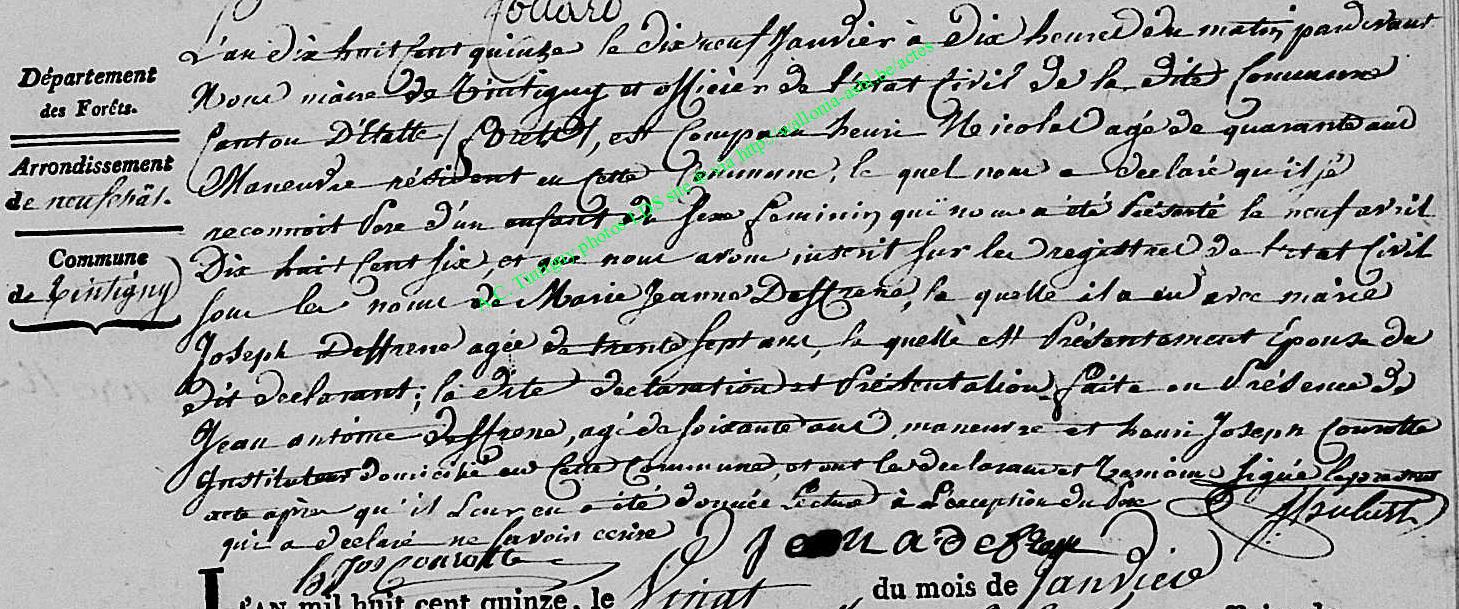 Département
des Forêts.
Arrondissement
de neufchât.
Commune
de Tintigny
L'an dix huit Cent quinze le dix neuf Janvier à dix heures du matin pardevant
Nous maire de Tintigny et officier de l'état Civil de la dite Commune
Canton D'Etalle / forêts /, est Comparu henri Nicolas agé de quarante ans
Maneuvre résident en Cette Commune, le quel nous a declaré qu'il se
reconnoit Pere d'un enfant de sexe feminin qui nous a été Présenté le neuf avril
Dix huit Cent six, et que nous avons inscrit sur les registres de l'état Civil
sous les noms de Marie Jeanne Deffrene, la quelle il a eu avec marie
Joseph Deffrene agée de trente sept ans, la quelle est Présentement Epouse du
dit declarant; la dite declaration et Présentation faite en Présence de
Jean antoine deffrene, agé de soixante ans maneuvre et henri Joseph Courotte
Instituteur domicilié en Cette Commune, et ont les declarans et temoins signé le présent
acte après qu'il Leur en a été donnée Lecture à L'exception du Pere
qui a declaré ne savoir ecrire
h Jos Courotte
L'AN mil huit cent quinze, le Vingt du mois de Janvier
A.C. Tintigny photos LDS site via http://wallonia-asbl.be/actes